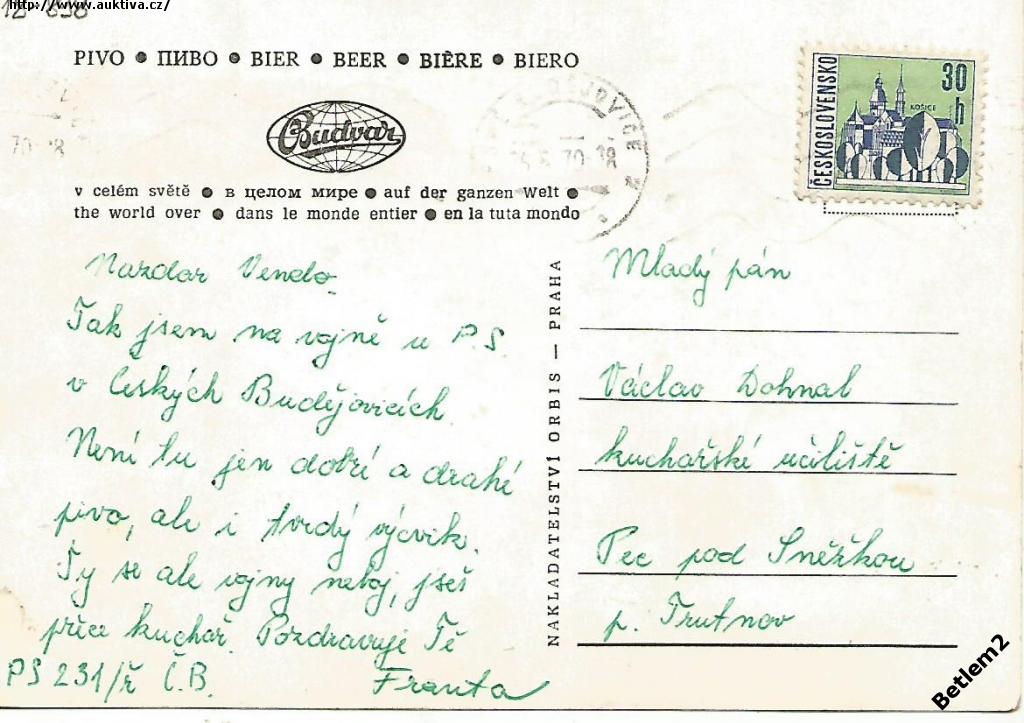 http://www.auktiva.cz/
PIVO ● ПИВО ● BIER ● BEER ● BIÈRE ● BIERO
Budvar
v celém světě ● в целом мире ● auf der ganzen Welt ●
the world over ● dans le monde entier ● en la tuta mondo
ČESKOSLOVENSKO
30 h
KOŠICE
Nazdar Vendo.
Tak jsem na vojně u P.S
v Českých Budějovicích.
Není tu jen dobré a drahé
pivo, ale i tvrdý výcvik.
Ty se ale vojny neboj, jseš
přece kuchař. Pozdravuje Tě
PS 231/ř Č.B. Franta
NAKLADATELSTVÍ ORBIS — PRAHA
Mladý pán
Václav Dohnal
kuchařské učiliště
Pec pod Sněžkou
p. Trutnov
Betlem2